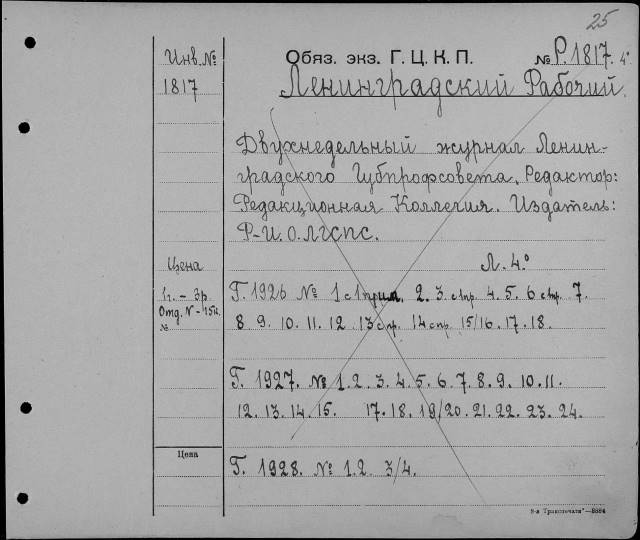 25
Инв. №
1817
Обяз. экз. Г. Ц. К. П. № Р. 1817. 4°
Ленинградский Рабочий.
Двухнедельный журнал Ленин-
градского Губпрофсовета. Редактор:
Редакционная Коллегия. Издатель:
Р-И. О. ЛГСПС.
Цена
1 г. – 3 р.
Отд. N – 15 к.
№
Л. 4°
Г. 1926 № 1 с 1 прил. 2. 3 с 1 пр. 4. 5. 6 с 1 пр. 7.
8 9. 10. 11. 12. 13 с пр. 14 с пр. 15/16. 17. 18.
Г. 1927. № 1. 2. 3. 4. 5. 6. 7. 8. 9. 10. 11.
12. 13. 14. 15. 17. 18. 19/20. 21. 22. 23. 24.
Цена
Г. 1928. № 1. 2 3/4.
8-я "Транспечати"—8884